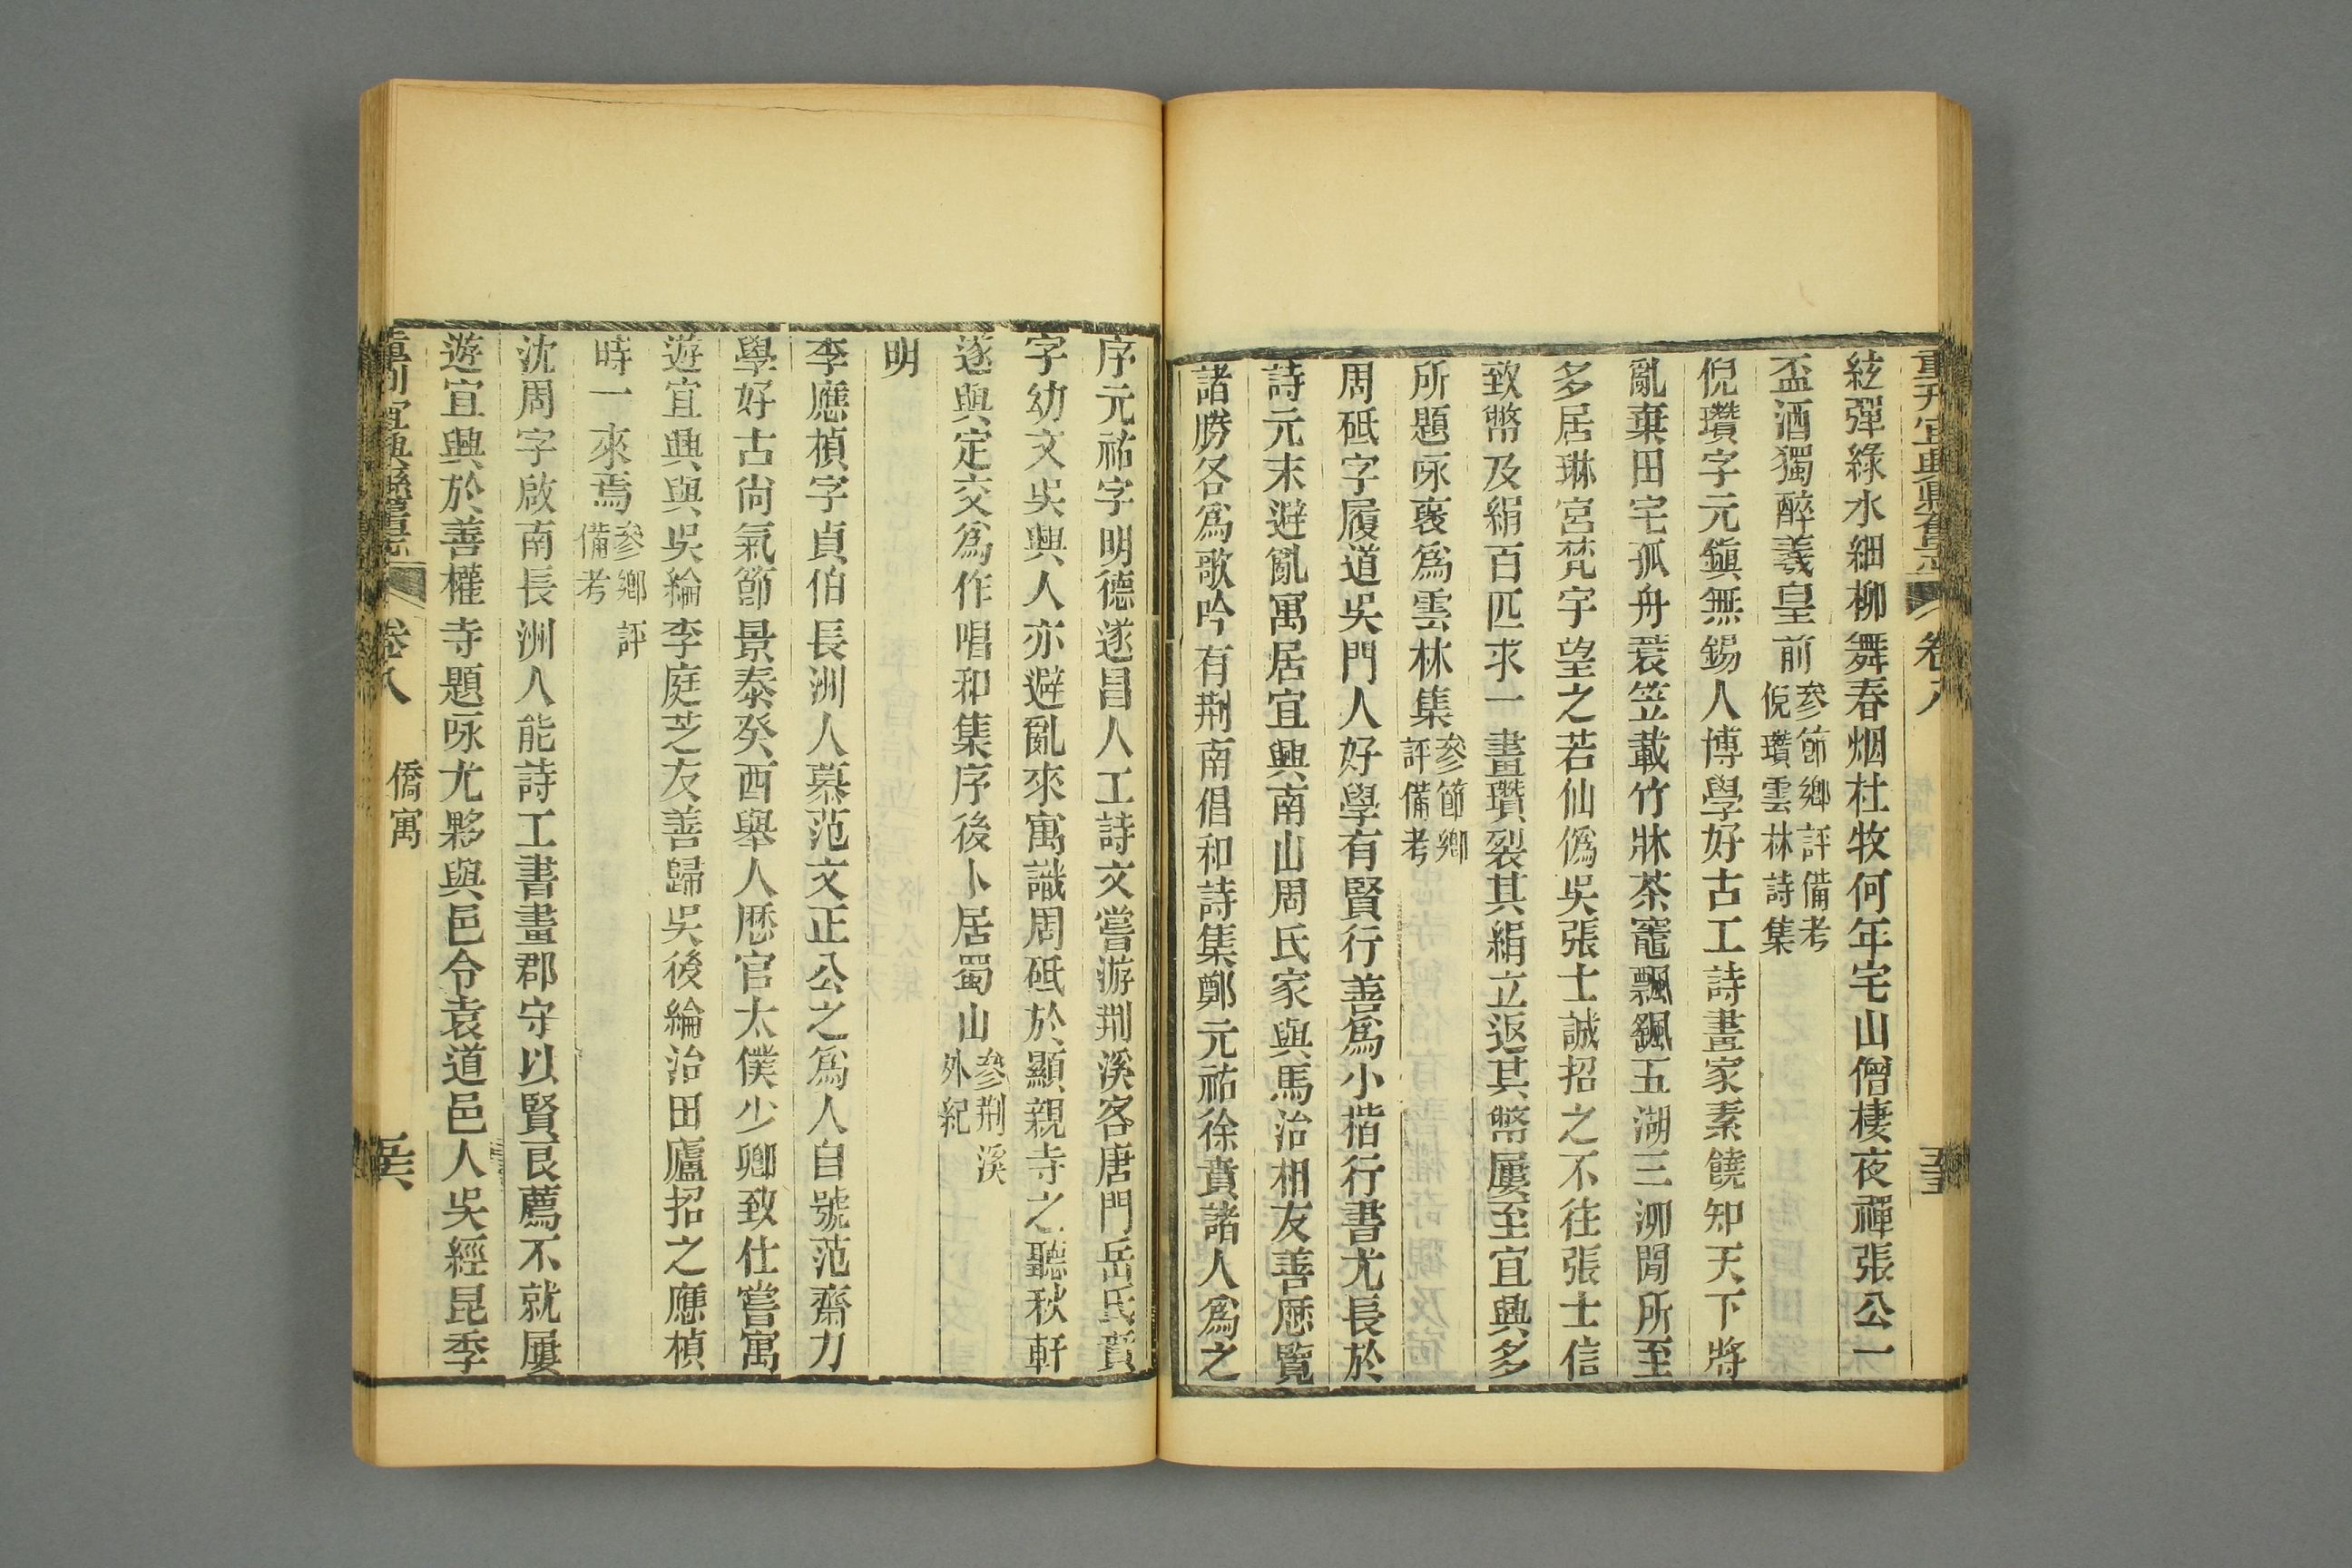 絃彈綠水細柳舞春烟杜牧何年宅山僧棲夜禪張公一
盃酒獨醉羲皇前參節鄉評備考倪瓚雲林詩集
倪瓚字元鎮無錫人博學好古工詩畫家素饒知天下將
亂棄田宅孤舟蓑笠載竹牀茶竈飄颻五湖三泖間所至
多居琳宮梵宇望之若仙僞吳張士誠招之不往張士信
致幣及絹百匹求一畫瓚裂其絹立返其幣屢至宜興多
所題咏裒爲雲林集參節鄉評備考
周砥字履道吳門人好學有賢行善爲小楷行書尤長於
詩元末避亂寓居宜興南山周氏家與馬治相友善歷覽
諸勝各爲歌吟有荆南倡和詩集鄭元祐徐賁諸人爲之
序元祐字明德遂昌人工詩文嘗游荆溪客唐門岳氏賁
字幼文吳興人亦避亂來寓識周砥於顯親寺之聽秋軒
遂與定交爲作唱和集序後卜居蜀山參荆溪外紀
明
李應楨字貞伯長洲人慕范文正公之爲人自號范齋力
學好古尙氣節景泰癸酉舉人歷官太僕少卿致仕嘗寓
遊宜興與吳綸李庭芝友善歸吳後綸治田廬招之應楨
時一來焉參鄉評備考
沈周字啟南長洲人能詩工書畫郡守以賢良薦不就屢
遊宜興於善權寺題咏尤夥與邑令袁道邑人吳經昆季
重刊宜興縣舊志 卷八 僑寓